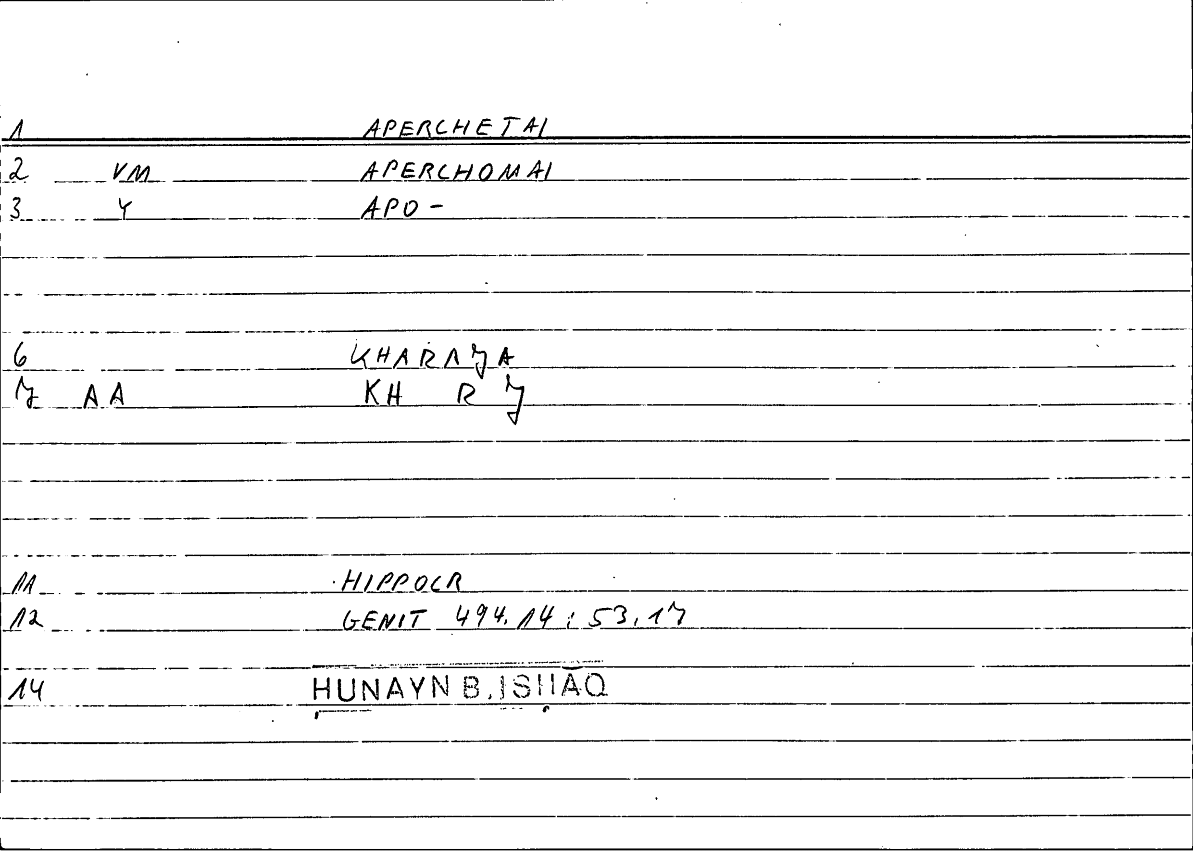 1 APERCHETAI
2 VM APERCHOMAI
3 Y APO-
6 KHARAJA
7 AA KH R J
11 HIPPOCR
12 GENIT 494.14 : 53,17
14 ḤUNAYN B. ISḤĀQ